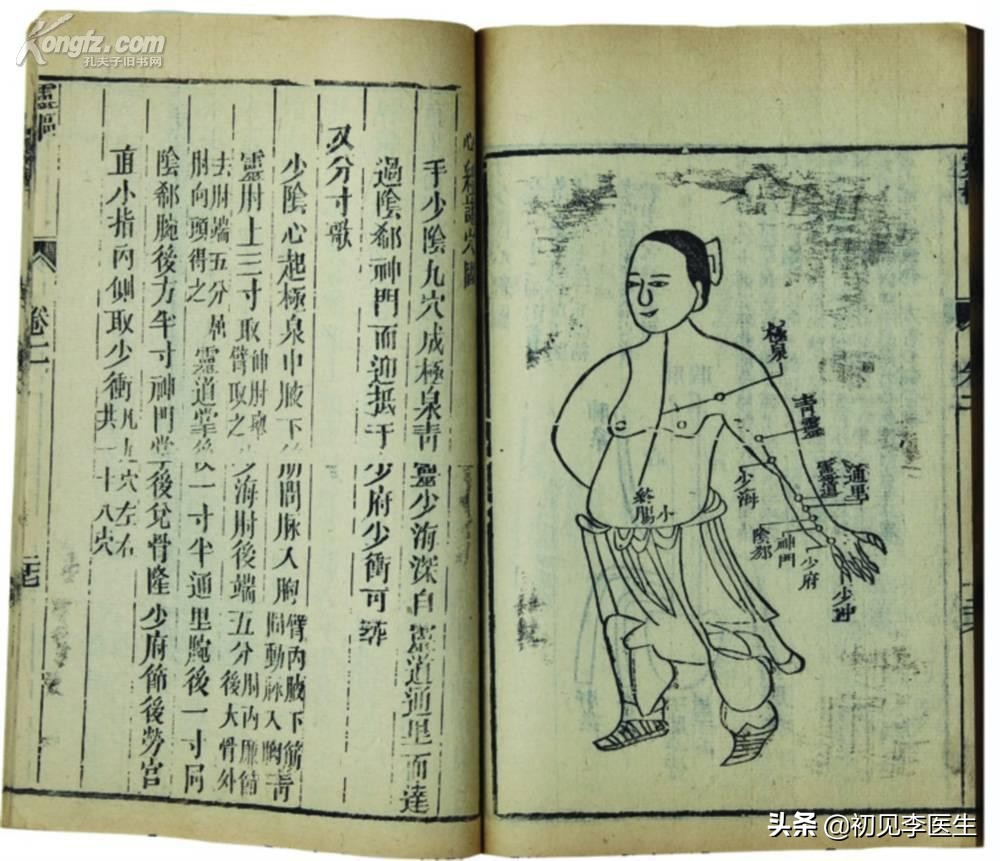 Kongfz.com
孔夫子旧书网
手少陰九穴成極泉青靈少海深自靈道通里而達
過陰郄神門而迎抵于少府少衝可
又分寸歌
少陰心起極泉中腋下筋間脉入胸臂內腋下筋間動脉入胸青
靈肘上三寸取伸肘舉臂取之少海肘後端五分肘內廉節後大骨外
去肘端五分屈肘向頭得之靈道掌後一寸半通里腕後一寸同
陰郄腕後方半寸神門掌後兌骨隆少府節後勞宮
直小指內側取少衝凡九穴左右共一十八穴
靈樞
卷二
極泉
青靈
通里
靈道
少海
陰郄
神門
少府
少冲
終
小腸
头条@初见李医生